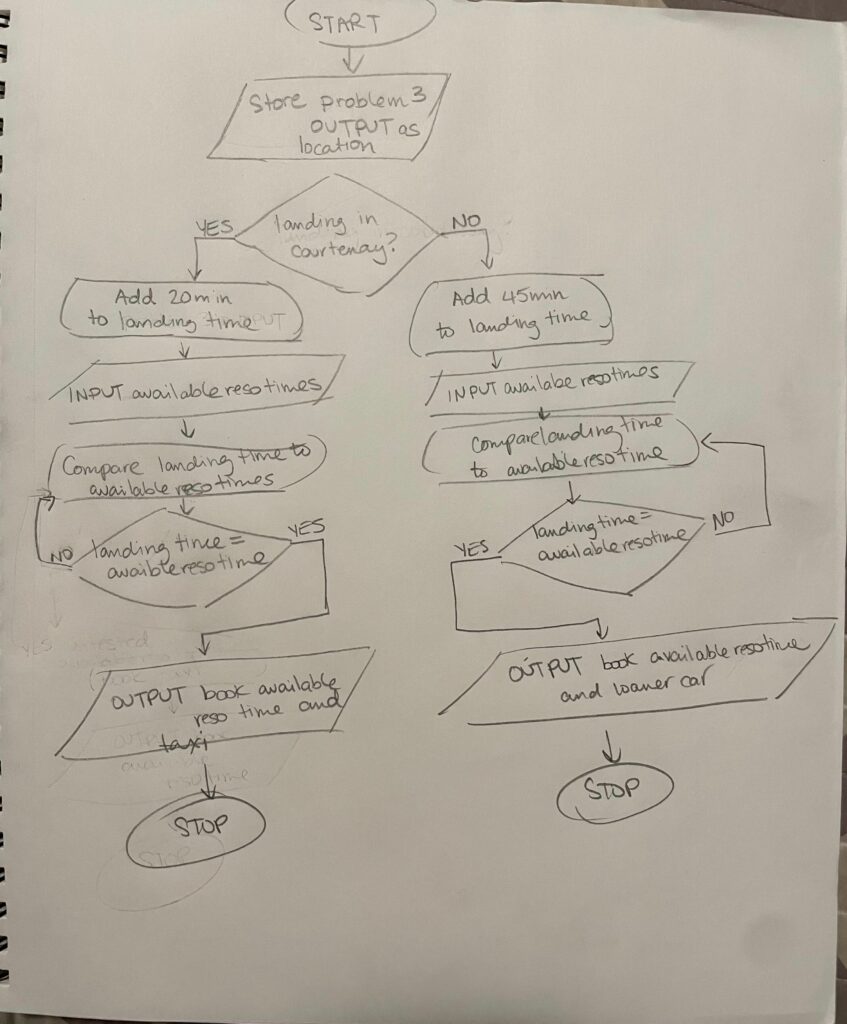 START
Store problem 3
OUTPUT as
location
landing in
courtenay?
YES
NO
Add 20min
to landing time
INPUT available reso times
Compare landing time to
available reso times
landing time =
avaible reso time
NO
YES
OUTPUT book available
reso time and
taxi
STOP
Add 45min
to landing time
INPUT availabe reso times
Compare landing time
to available reso time
landing time =
available reso time
YES
NO
OUTPUT book available reso time
and loaner car
STOP